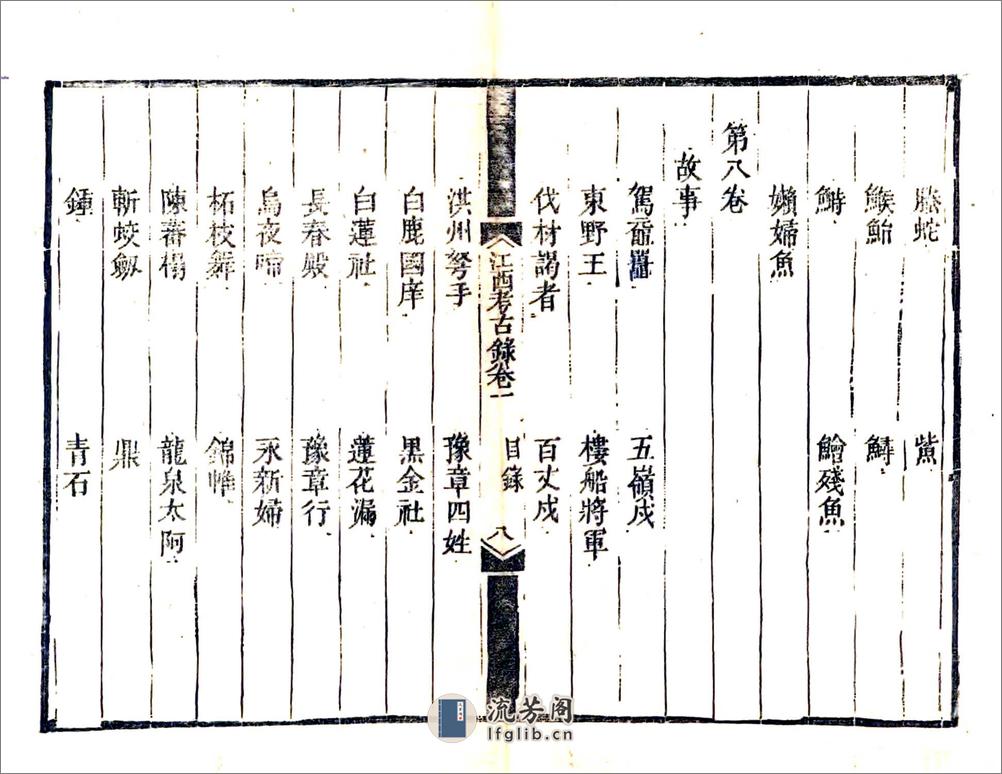 螣蛇 鮆
鯸鮐 鱘
鰣 鱠殘魚
嬾婦魚
第八卷
故事
駕黿鼉 五嶺戍
東野王 樓船將軍
伐材謁者 百丈戍
江西考古錄卷一 目錄 八
洪州弩手 豫章四姓
白鹿國庠 黑金社
白蓮社 蓮花漏
長春殿 豫章行
烏夜啼 永新婦
柘枝舞 錦帷
陳蕃榻 龍泉太阿
斬蛟劍 鼎
鍾 青石
流芳阁
lfglib.cn